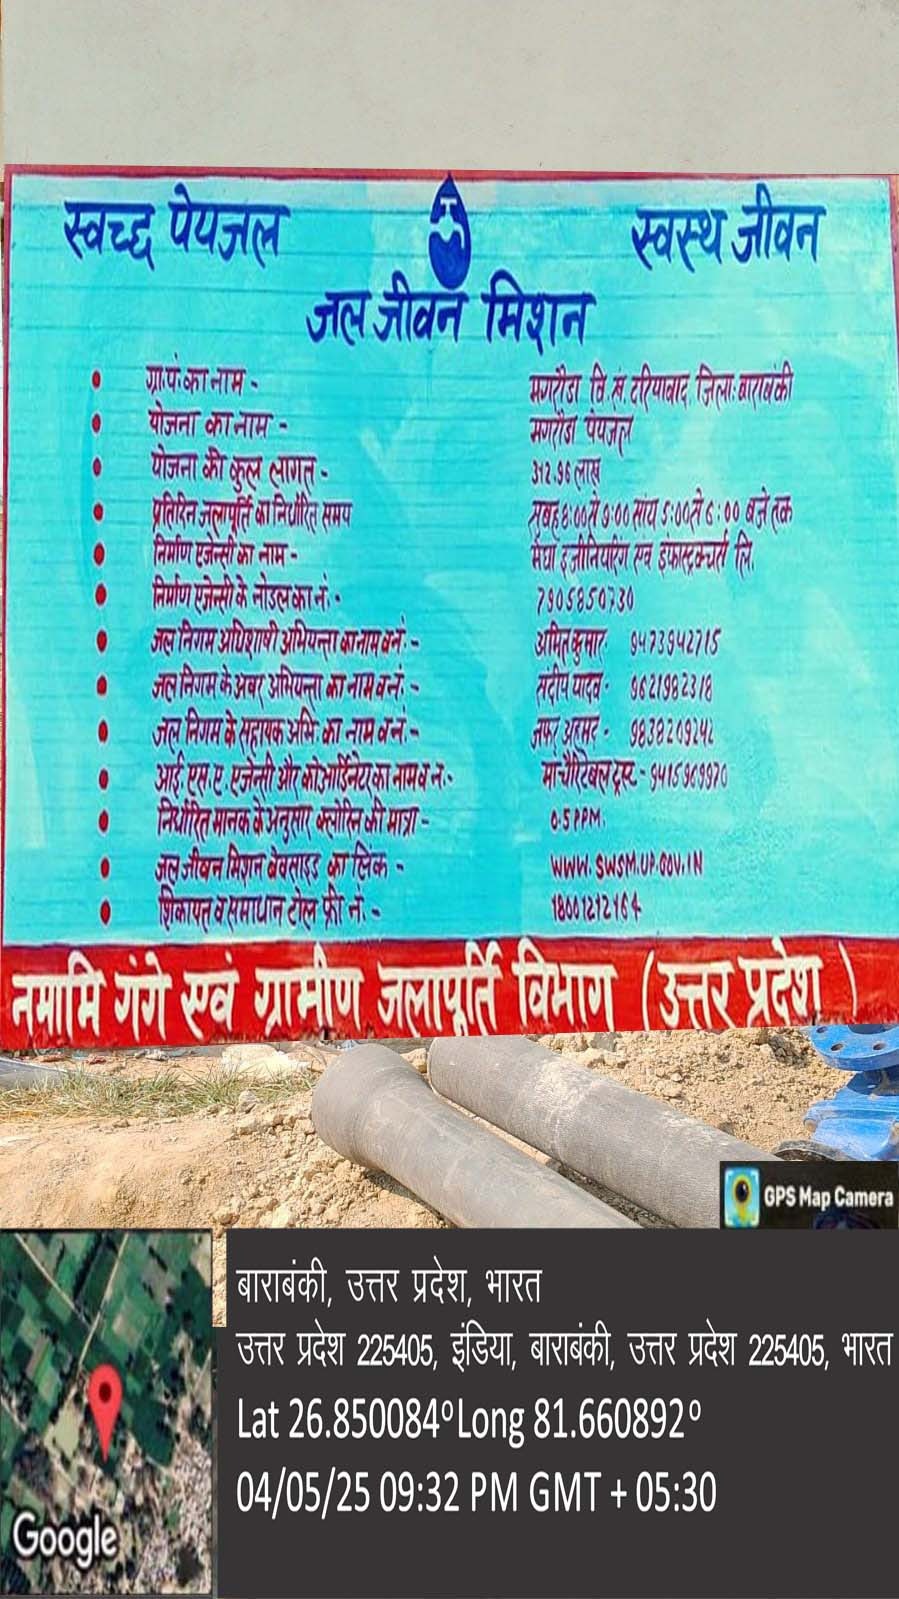 स्वच्छ पेयजल स्वस्थ जीवन
जल जीवन मिशन
• ग्रा.पं.का नाम - मगरौडा वि.खं. दरियाबाद, जिला:बाराबंकी
• योजना का नाम - मगरौडा पेयजल
• योजना की कुल लागत - 312.96 लाख
• प्रतिदिन जलापूर्ति का निर्धारित समय सुबह 8:00 से 9:00 सांय 5:00 से 6:00 बजे तक
• निर्माण एजेन्सी का नाम - मेघा इंजीनियरिंग एवं इंफ्रास्ट्रक्चर्स लि.
• निर्माण एजेन्सी के नोडल का नं.- 7905850730
• जल निगम अधिशाषी अभियन्ता का नाम व नं.- अमित कुमार- 9473942715
• जल निगम के अवर अभियन्ता का नाम व नं.- संदीप यादव- 9621982318
• जल निगम के सहायक अभि. का नाम व नं.- जफर अहमद - 9838209242
• आई.एस.ए. एजेन्सी और कोआर्डिनेटर का नाम व नं.- मा चैरिटेबल ट्रस्ट - 9415969970
• निर्धारित मानक के अनुसार क्लोरिन की मात्रा - 0.5 PPM.
• जल जीवन मिशन बेवसाइड का लिंक - WWW.SWSM.UP.GOV.IN
• शिकायत व समाधान टोल फ्री नं.- 18001212164
नमामि गंगे एवं ग्रामीण जलापूर्ति विभाग (उत्तर प्रदेश)
GPS Map Camera
बाराबंकी, उत्तर प्रदेश, भारत
उत्तर प्रदेश 225405, इंडिया, बाराबंकी, उत्तर प्रदेश 225405, भारत
Lat 26.850084° Long 81.660892°
04/05/25 09:32 PM GMT + 05:30
Google